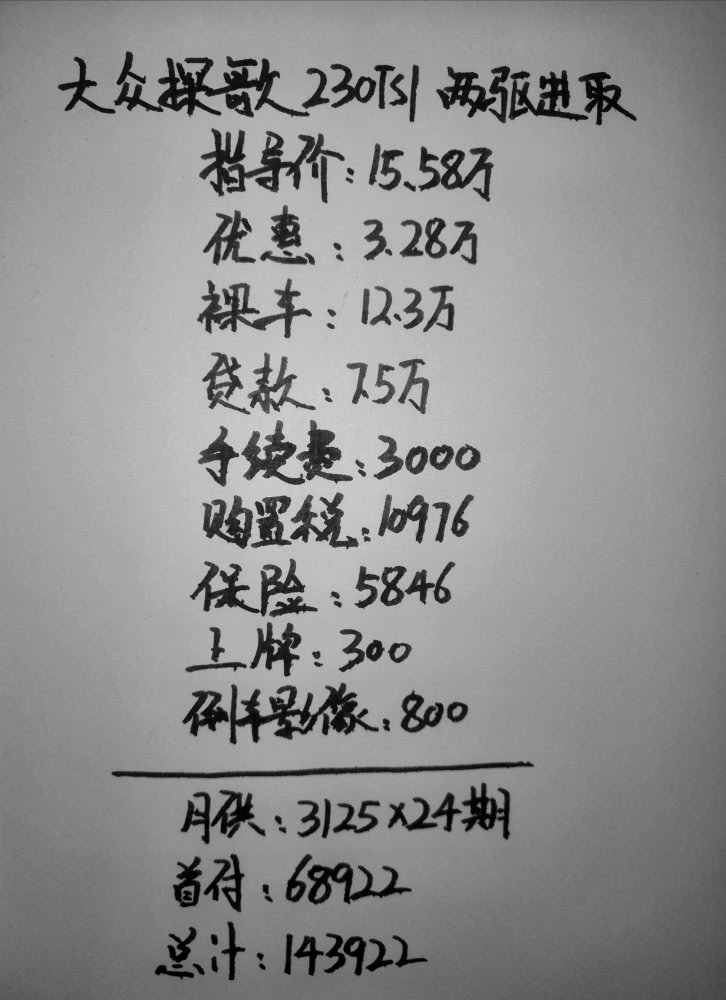 大众探歌 230TSI 两驱进取
指导价:15.58万
优惠:3.28万
裸车:12.3万
贷款:7.5万
手续费:3000
购置税:10976
保险:5846
上牌:300
倒车影像:800
月供:3125×24期
首付:68922
总计:143922